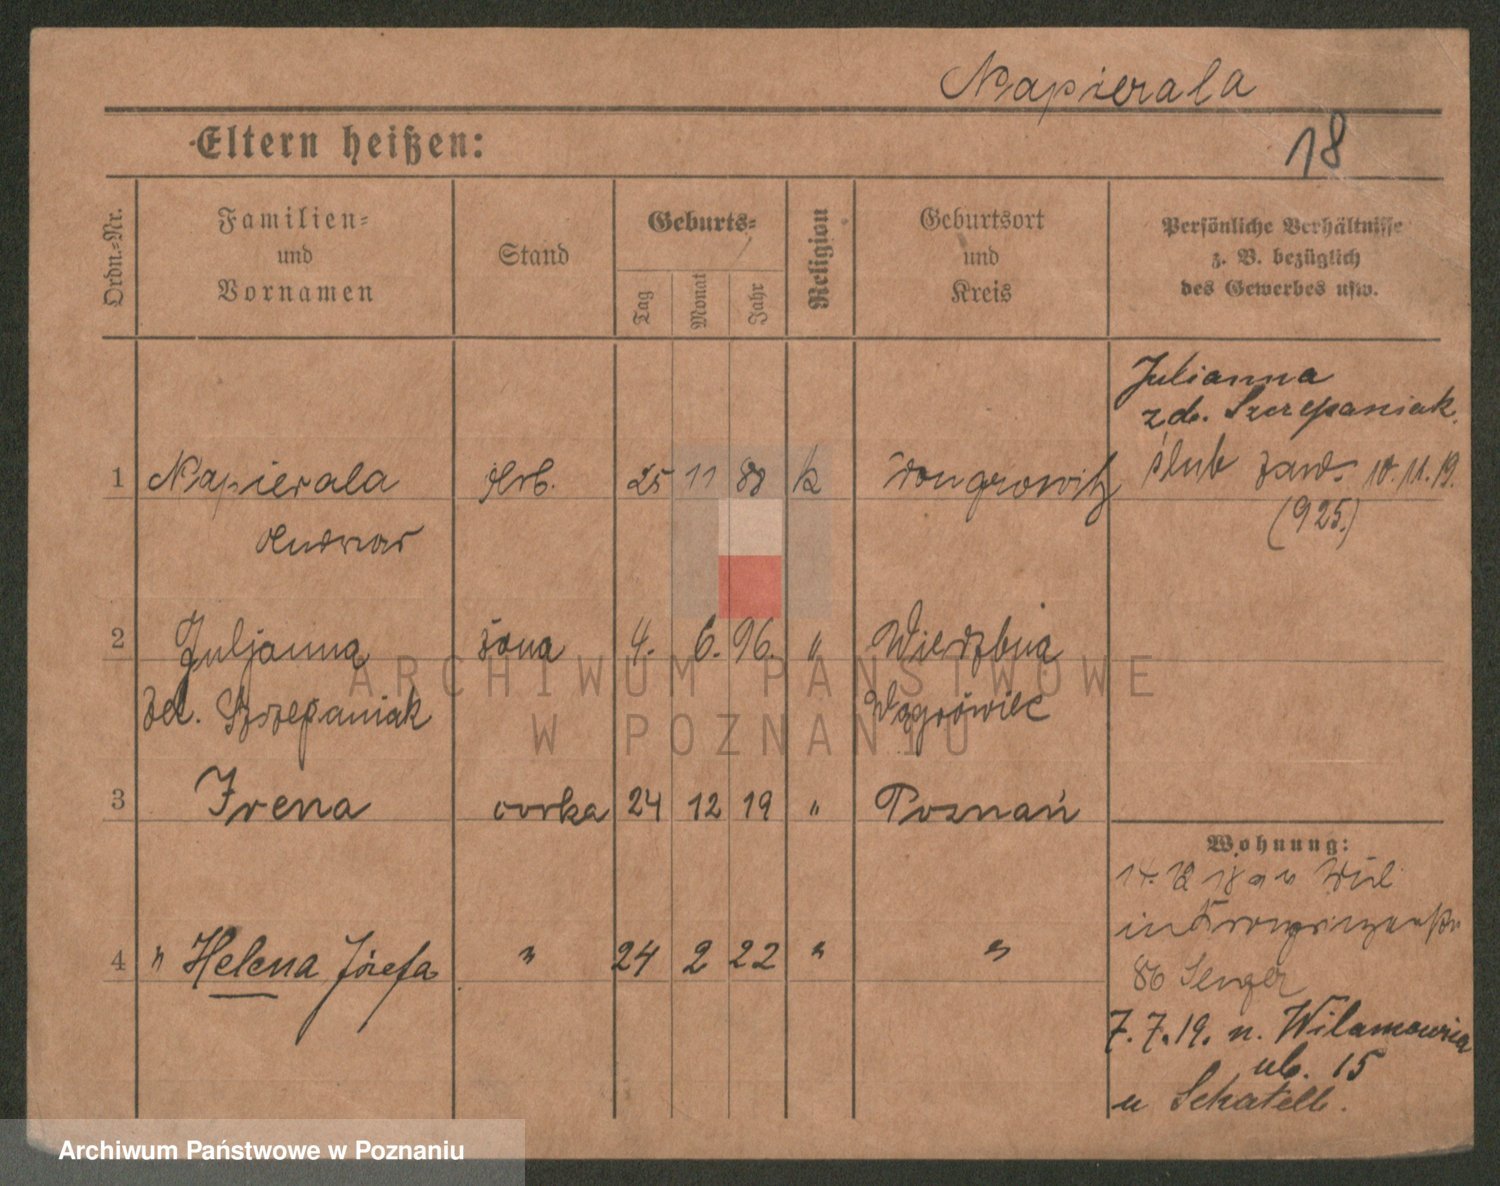 Napierala
18
Eltern heißen:
Ordn.-Nr.
Familien-
und
Vornamen
Stand
Geburts-
Tag
Monat
Jahr
Religion
Geburtsort
und
Kreis
Persönliche Verhältnisse
z. B. bezüglich
des Gewerbes usw.
Julianna
zd. Szczepaniak.
1 Napierala Arb. 25 11 88 k Wongrowitz ślub zaw. 10.11.19.
(925.)
2 Juljanna żona 4. 6. 96. " Wierzbna
zd. Szczepaniak Wągrówiec
3 Irena córka 24 12 19 " Poznań
Wohnung:
4 " Helena Józefa " 24 2 22 " "
86
7.7.19. n. Wilamowica
ul. 15
u Schatell.
ARCHIWUM PAŃSTWOWE
W POZNANIU
Archiwum Państwowe w Poznaniu